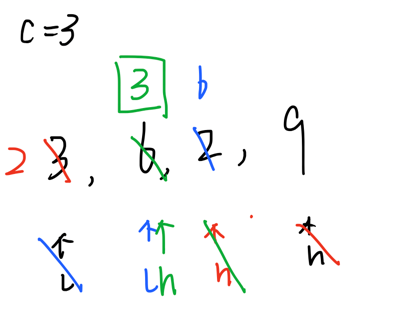 c=3
3 b
2 3, 6, 2, 9
L L h h h